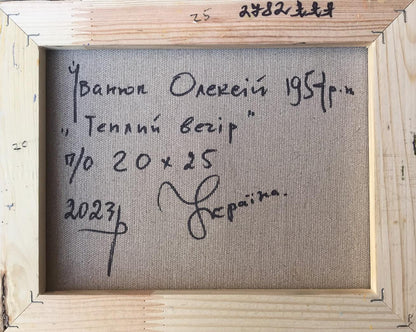 25 2782 ***
Іванюк Олексій 1957 р.н
„Теплий вечір"
п/о 20 x 25
2023р Україна.